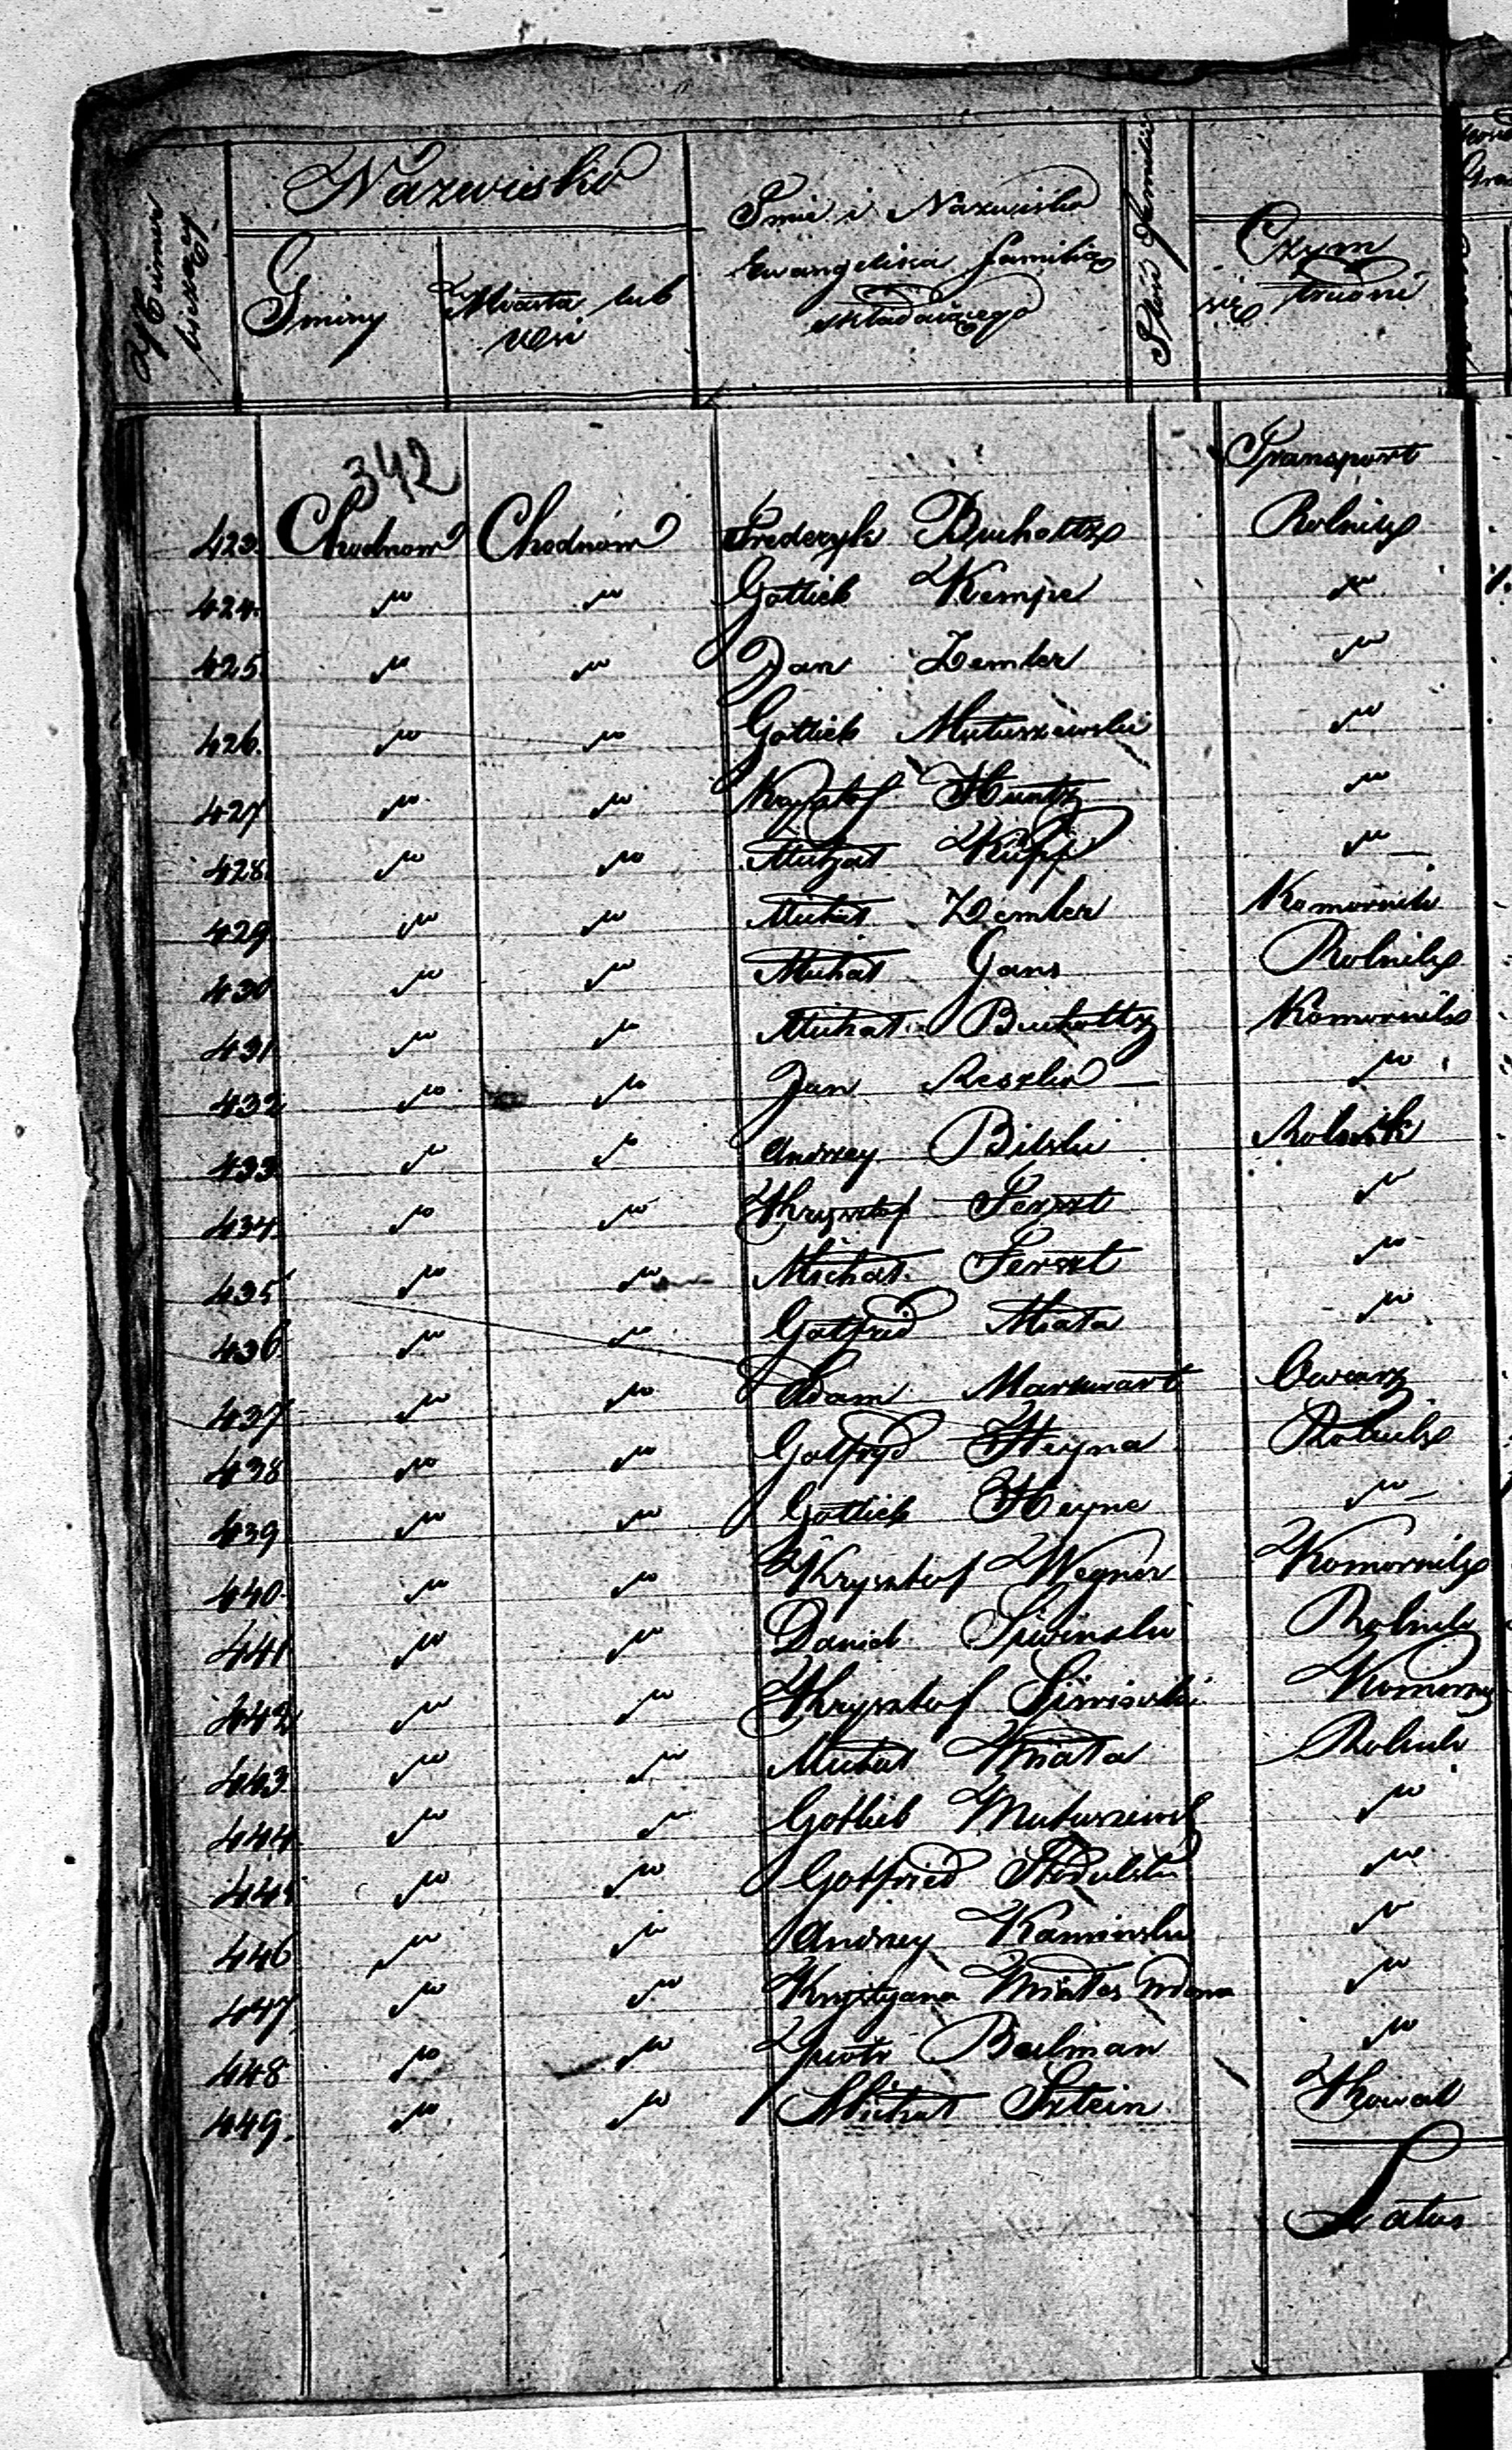 № bieżący
Nazwisko
Gminy
Miasta lub wsi
Imie i Nazwisko
Ewangelika familią
składaiącego
Familii
Czym
się trudni
342
Transport
423. Chodnow Chodnow Frederyk Bucholtz Rolnik
424. " " Gotlieb Kempe "
425. " " Jan Zemler "
426. " " Gotlieb Matuszewski "
427 " " Krysztof Huntz "
428. " " Michał "
429 " " Michał Zemler Komornik
430 " " Michał Gans Rolnik
431 " " Michał Bucholtz Komornik
432 " " Jan "
433 " " Andrzey Bilski Rolnik
434 " " Krysztof Ferszt "
435 " " Michał Ferszt "
436 " " Gotfrid Miata "
437 " " Adam Markwart Owcarz
438 " " Gotfryd Heyna Rolnik
439 " " Gotlieb Heyne "
440. " " Krysztof Wegner Komornik
441 " " Daniel Rolnik
442 " " Krysztof Komorny
443 " " Michał Miata Rolnik
444 " " Gotlieb Matuszewsk "
445 " " Gotfried "
446 " " Andrzey Kaminski "
447 " " Krystyana Miates wdowa "
448 " " Piotr Beilman "
449. " " Michał Sztein Kowal
Latus